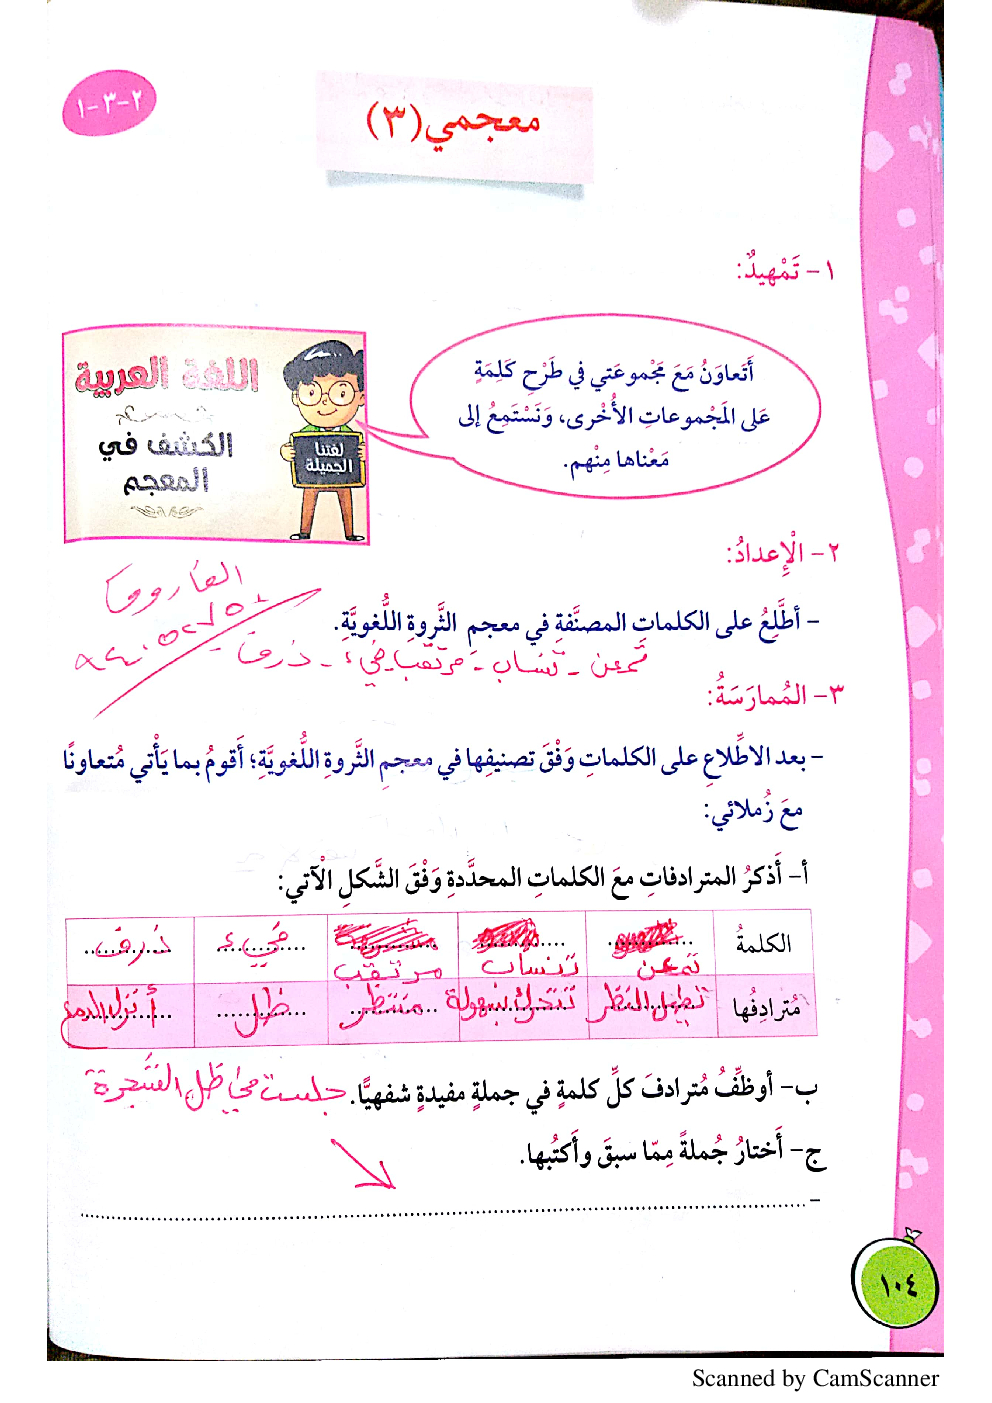 ٢-٣-١
معجمي (٣)
١- تَمْهيدٌ:
أَتَعاوَنُ مَعَ مَجْموعَتي في طَرْحِ كَلِمَةٍ
عَلى المَجْموعاتِ الأُخْرى، وَنَسْتَمِعُ إلى
مَعْناها مِنْهم.
اللغة العربية
الكشف في
المعجم
لغتنا
الجميلة
٢- الْإِعدادُ:
الفاروق
- أطَّلِعُ على الكلماتِ المصنَّفةِ في معجمِ الثَّروةِ اللُّغويَّةِ.
تمعن - تنساب - مرتقب - فيء - ذرف -
٣- المُمارَسَةُ:
- بعد الاطِّلاعِ على الكلماتِ وَفْقَ تصنيفِها في معجمِ الثَّروةِ اللُّغويَّةِ؛ أَقومُ بما يَأْتي مُتعاونًا
معَ زُملائي:
أ- أَذكرُ المترادفاتِ معَ الكلماتِ المحدَّدةِ وَفْقَ الشَّكلِ الْآتي:
الكلمةُ تمعن تنساب مرتقب فيء ذرف
مُترادِفُها تطيل النظر تتحرك بسهولة منتظر ظل أنزل الدمع
ب- أوظِّفُ مُترادفَ كلِّ كلمةٍ في جملةٍ مفيدةٍ شفهيًّا. جلست في ظل الشجرة
ج- أَختارُ جُملةً مِمّا سبقَ وأَكتُبها.
-
١٠٤
Scanned by CamScanner